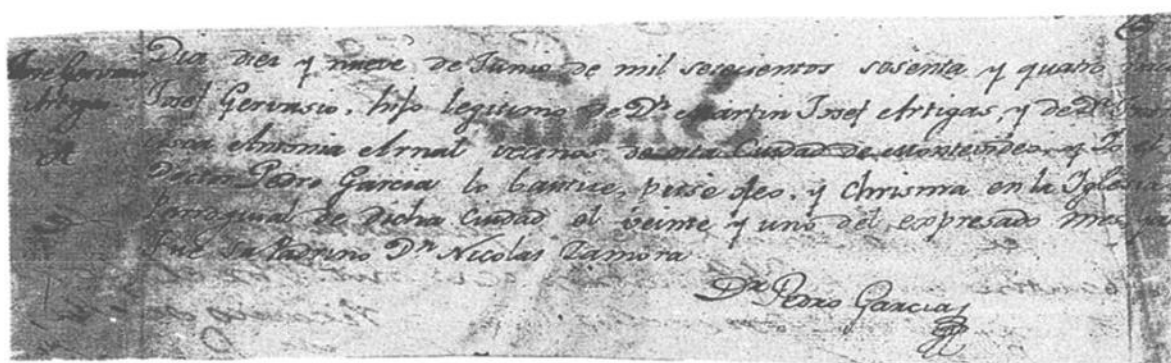 Jose Gervasio
Artigas
Dia diez y nueve de Junio de mil setecientos sesenta y quatro nacio
Josef Gervasio, hijo legitimo de Dn Martin Josef Artigas, y de Da Fran-
cisca Antonia Arnal vecinos de esta Ciudad de Montevideo: y Yo el
Doctor Pedro Garcia lo bautice, puse oleo, y Chrisma en la Iglesia
Parroquial de dicha Ciudad el veinte y uno del expresado mes, y
fue su Padrino Dn Nicolas Zamora
Dr Pedro Garcia